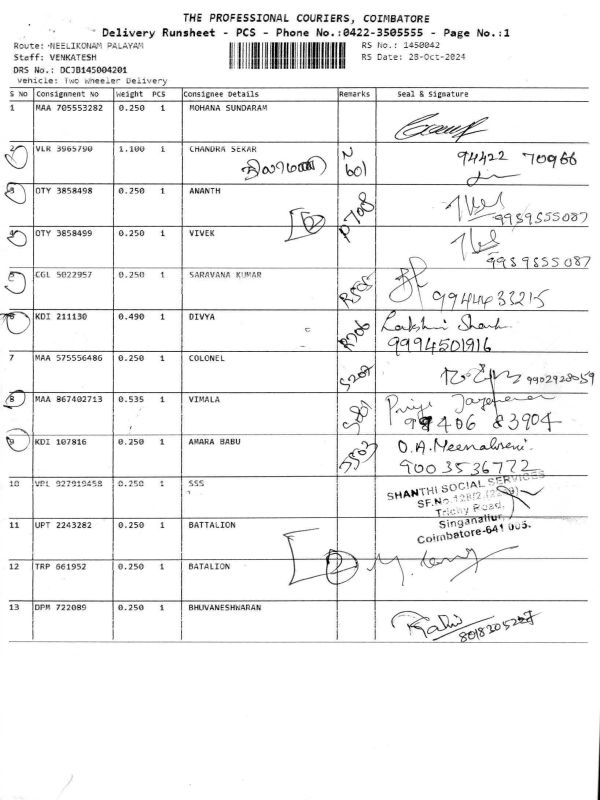 THE PROFESSIONAL COURIERS, COIMBATORE
Delivery Runsheet - PCS - Phone No.:0422-3505555 - Page No.:1
Route: -NEELIKONAM PALAYAM
RS No.: 1450042
Staff: VENKATESH
RS Date: 28-Oct-2024
DRS No.: DCJB145004201
Vehicle: Two Wheeler Delivery
S No Consignment No Weight PCS Consignee Details Remarks Seal & Signature
1 MAA 705553282 0.250 1 MOHANA SUNDARAM
2 VLR 3965790 1.100 1 CHANDRA SEKAR N 601 94422 70966
3 OTY 3858498 0.250 1 ANANTH P708 9959555087
2
4 OTY 3858499 0.250 1 VIVEK 9959555087
5 CGL 5022957 0.250 1 SARAVANA KUMAR R505 9944433215
6 KDI 211130 0.490 1 DIVYA R706 Lakshmi
9994501916
7 MAA 575556486 0.250 1 COLONEL S207 9902928059
8 MAA 867402713 0.535 1 VIMALA S801 Priya
83904
9 KDI 107816 0.250 1 AMARA BABU S503 O.A.Meenakseni.
9003536772
10 VPL 927919458 0.250 1 SSS
SHANTHI SOCIAL SERVICES
Trichy Road,
Singanallur,
Coimbatore-641 005.
11 UPT 2243282 0.250 1 BATTALION
2
12 TRP 661952 0.250 1 BATALION
13 DPM 722089 0.250 1 BHUVANESHWARAN